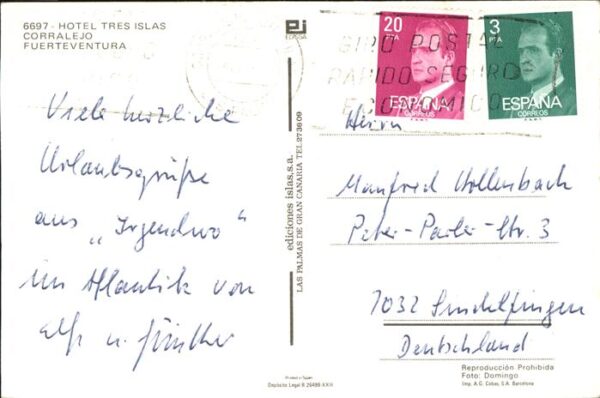 6697 - HOTEL TRES ISLAS
CORRALEJO
FUERTEVENTURA
Viele herzliche
Urlaubsgrüße
aus „Irgendwo"
im Atlantik von
u. Günther
ei
ediciones islas,s.a.
LAS PALMAS DE GRAN CANARIA TEL.273609
Printed in Spain
Depósito Legal B 26499-XXIII
20
PTA
ESPAÑA
CORREOS
3
PTA
ESPAÑA
CORREOS
GIRO POSTAL
RAPIDO SEGURO
ECONOMICO
Herrn
Manfred Hollenbach
Peter-Parler-Str. 3
7032 Sindelfingen
Deutschland
Reproducción Prohibida
Foto: Domingo
Imp. A.G. Cobas, S.A. Barcelona